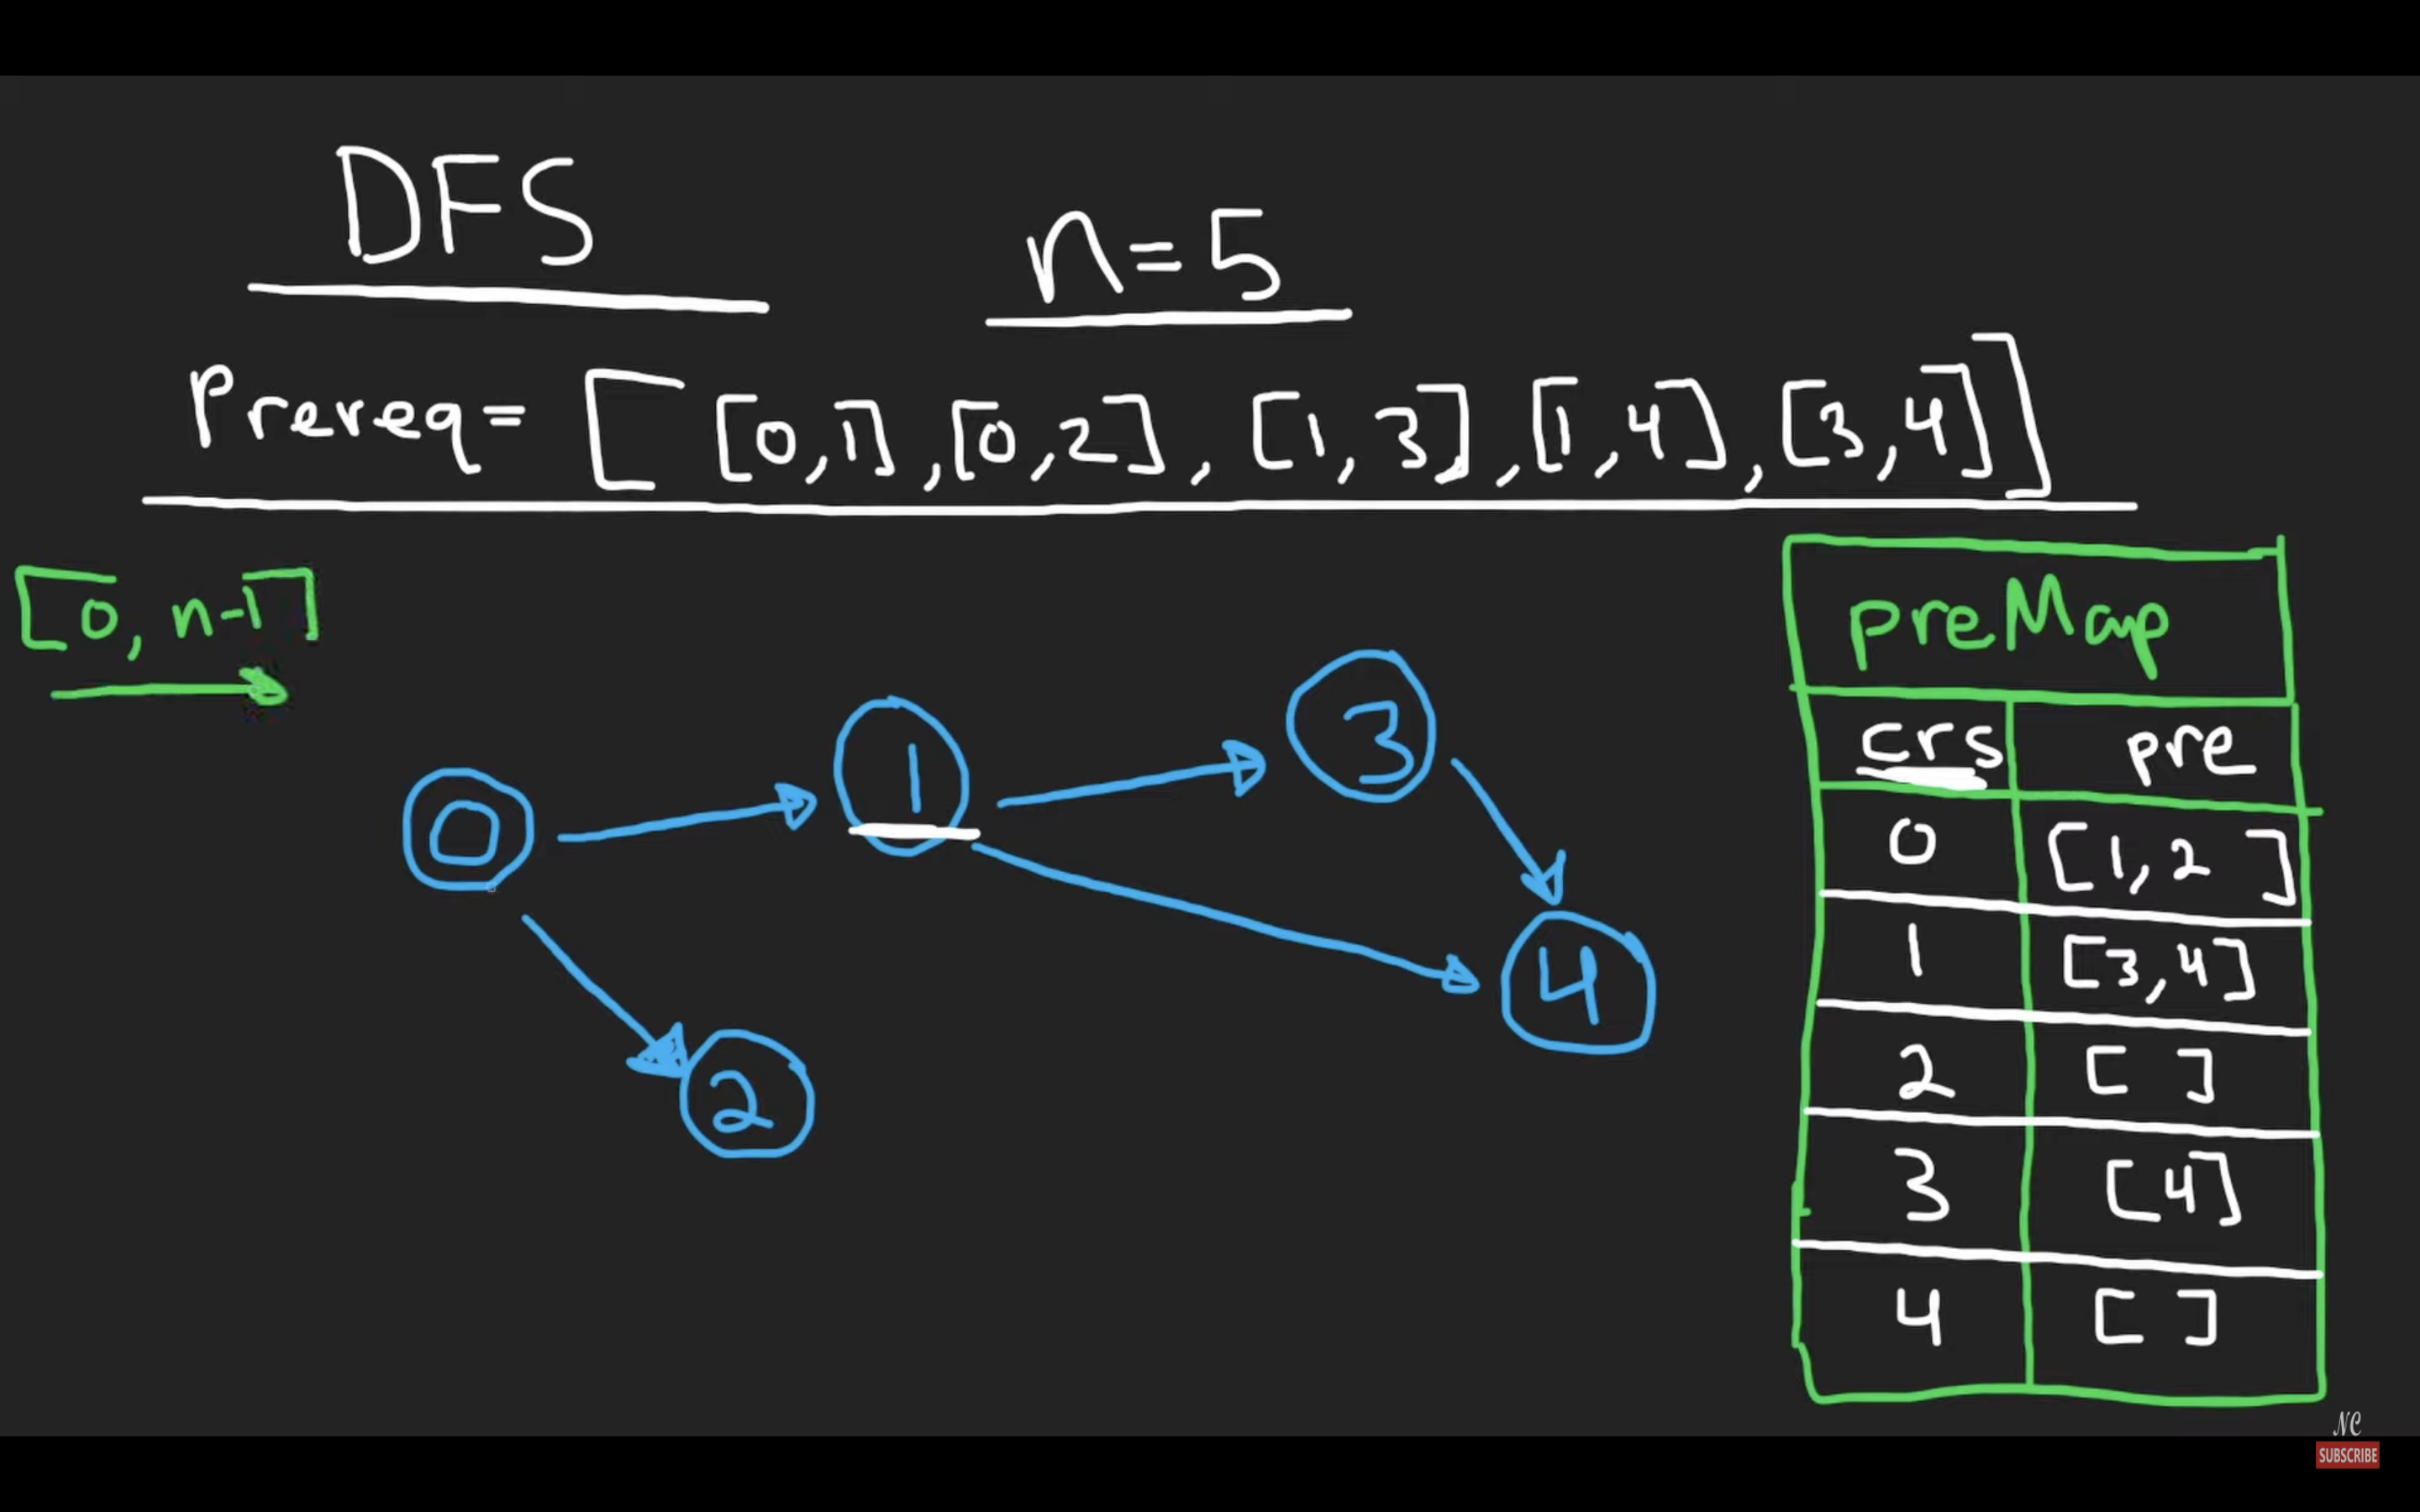 DFS
n=5
Prereq= [ [0,1],[0,2], [1,3],[1,4],[3,4]]
[0, n-1]
preMap
crs pre
0 [1,2 ]
1 [3,4]
2 [ ]
3 [4]
4 [ ]
3
1
0
4
2
NC
SUBSCRIBE